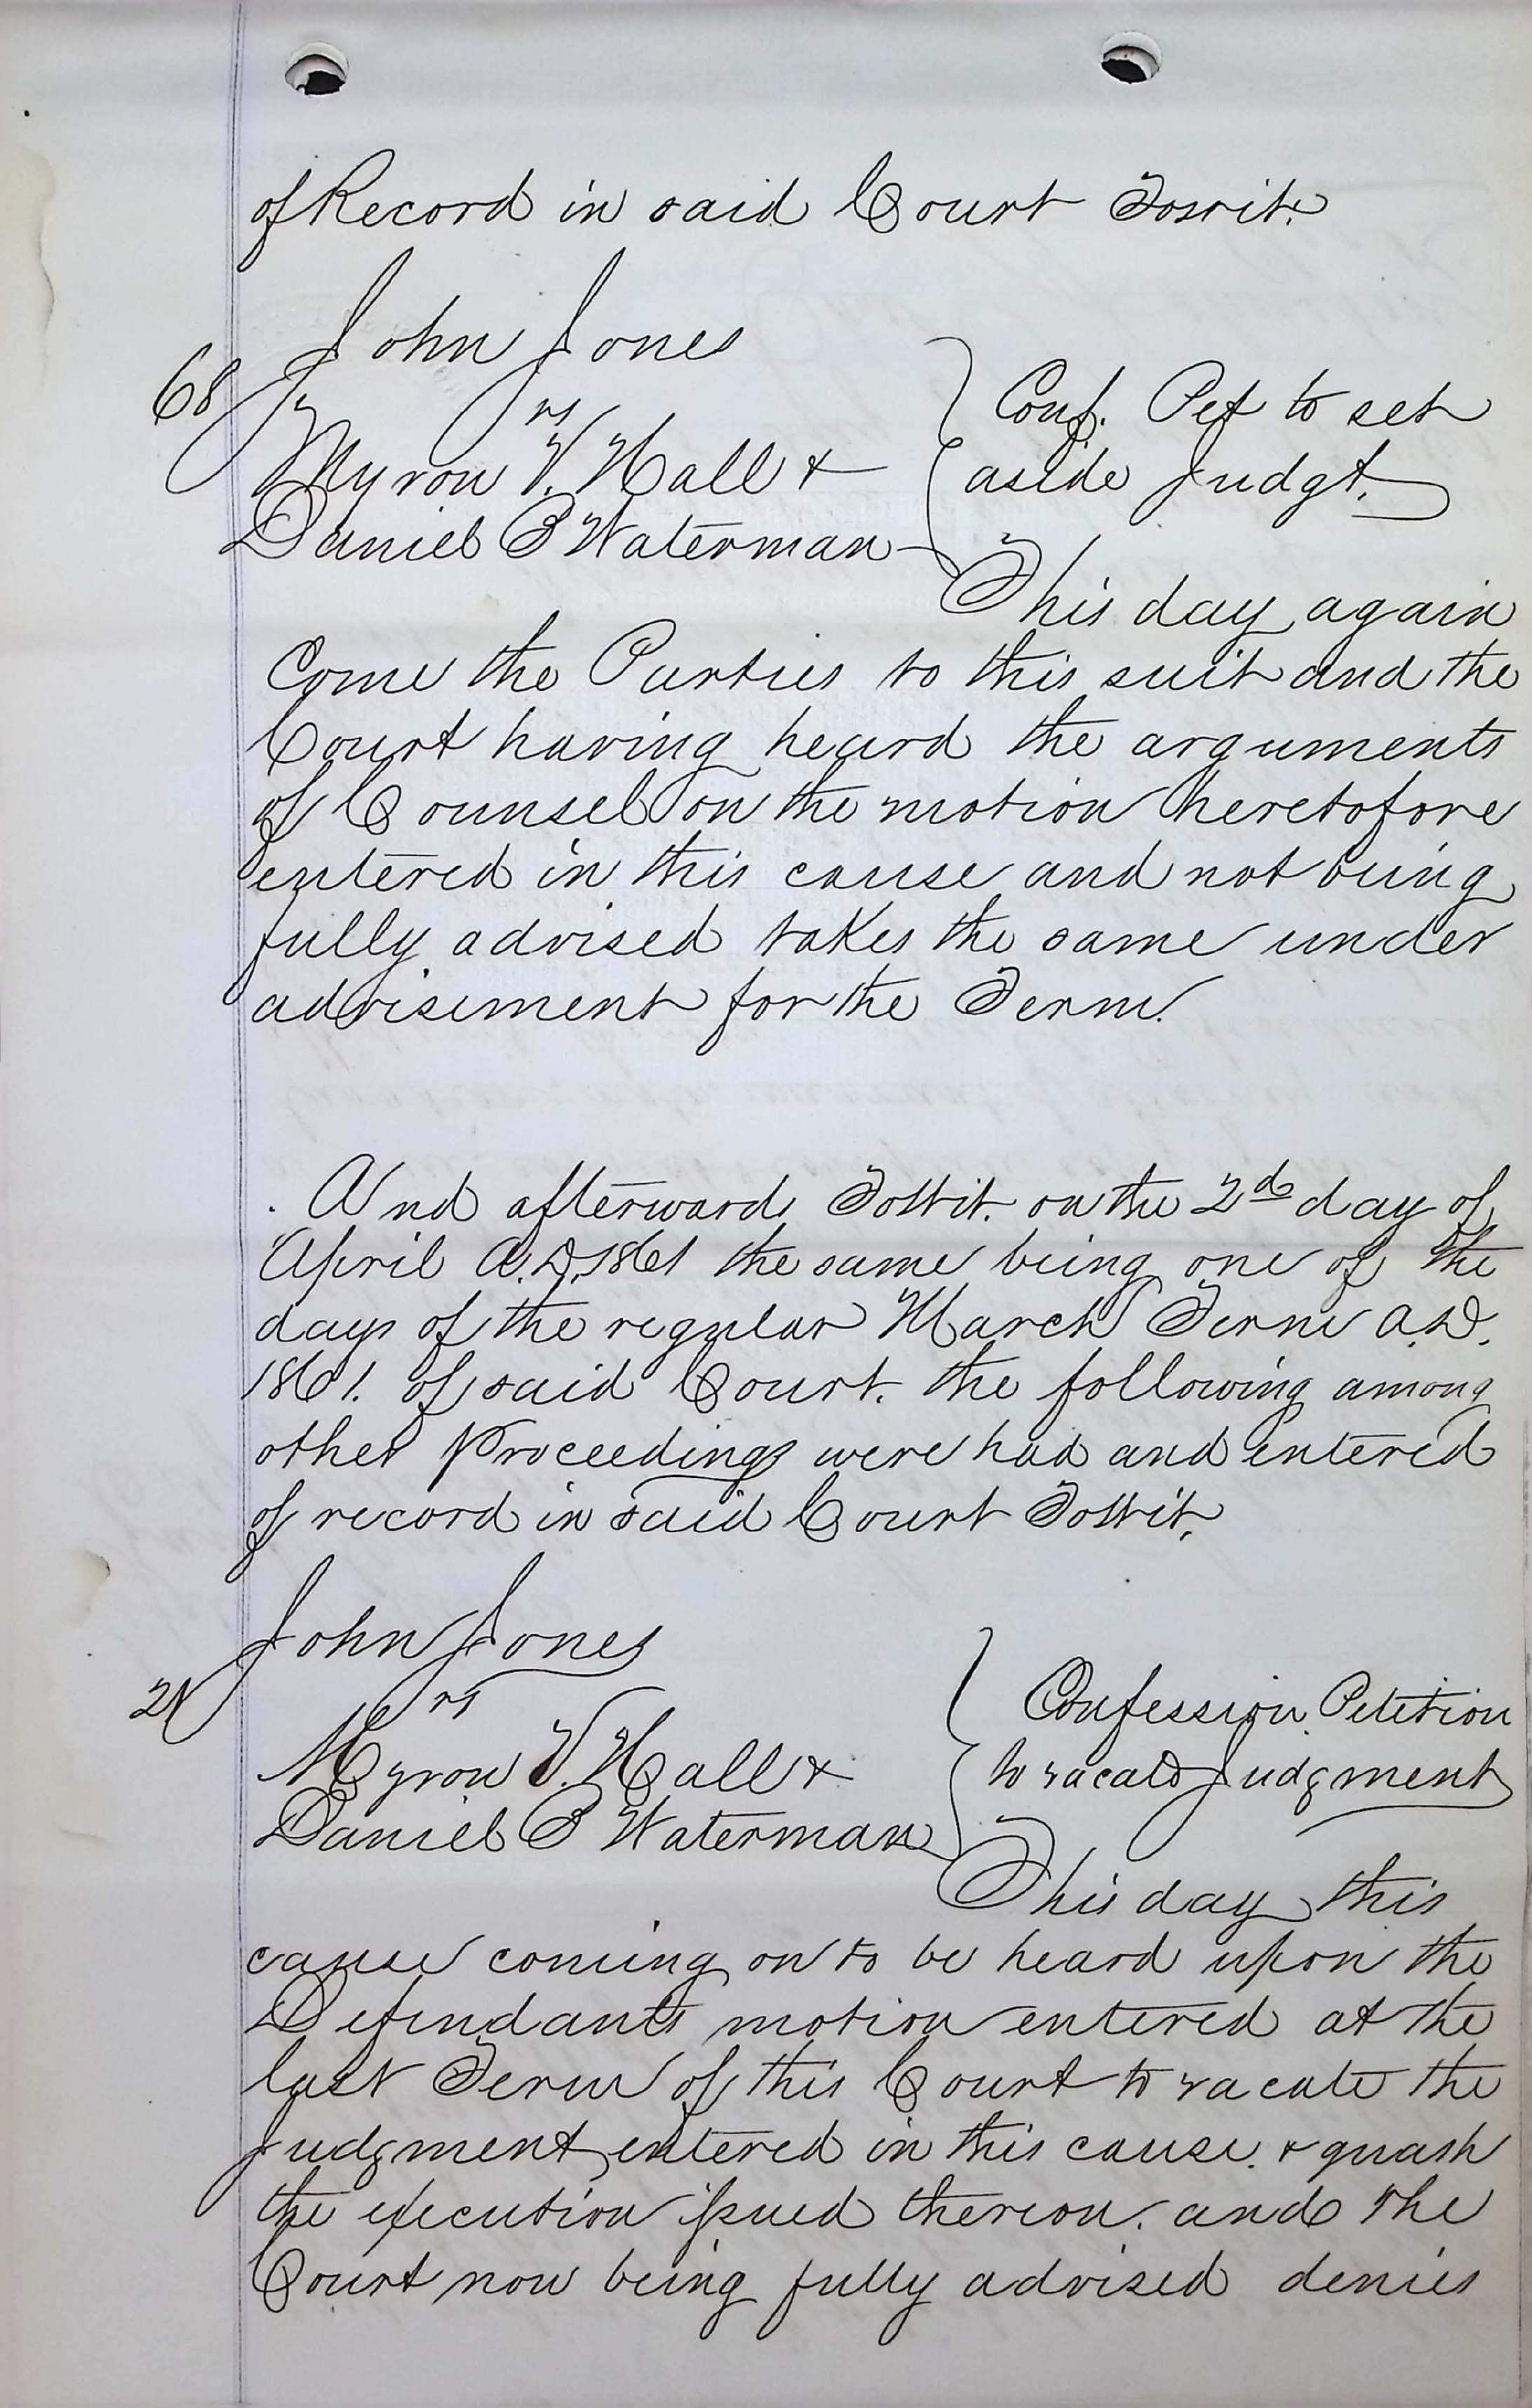 of Record in said Court Towit:
John Jones
68
vs
Myron V. Hall &
Daniel B Waterman
Conf. Pet to set
aside Judgt.
This day again
Come the Parties to this suit and the
Court having heard the arguments
of Counsel on the motion heretofore
entered in this cause and not being
fully advised takes the same under
advisement for the Term.
And afterwards ToWit. on the 2d day of
April A.D. 1861 the same being one of the
days of the regular March Term A.D.
1861. of said Court. the following among
other Proceedings were had and entered
of record in said Court ToWit,
John Jones
21
vs
Myron V. Hall &
Daniel B Waterman
Confession Petition
to vacate Judgment
This day this
cause coming on to be heard upon the
Defendants motion entered at the
last Term of this Court to vacate the
Judgment entered in this cause. & quash
the execution issued thereon. and the
Court now being fully advised denies